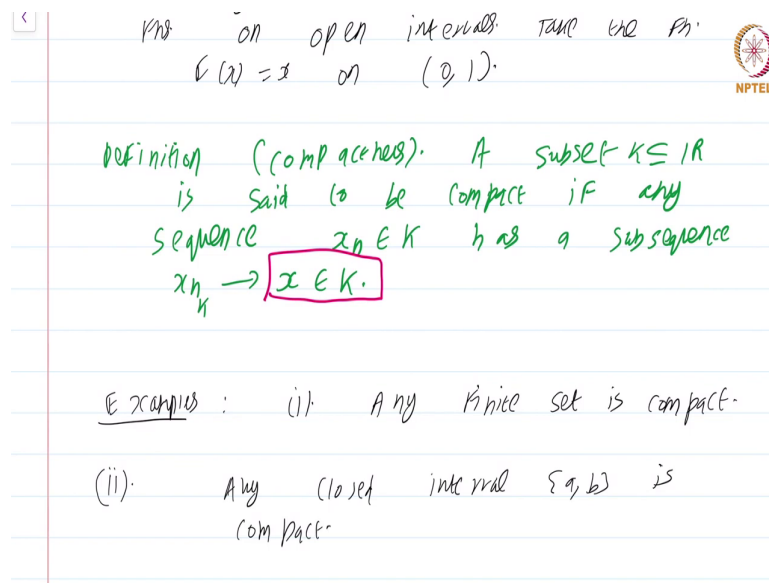 Fns. on open intervals. Take the Fn.
F(x) = x on (0, 1).
NPTEL
Definition (compactness). A subset K ⊆ ℝ
is said to be compact if any
sequence xₙ ∈ K has a subsequence
xₙₖ → x ∈ K.
Examples : (i). Any Finite set is compact.
(ii). Any closed interval [a, b] is
compact.